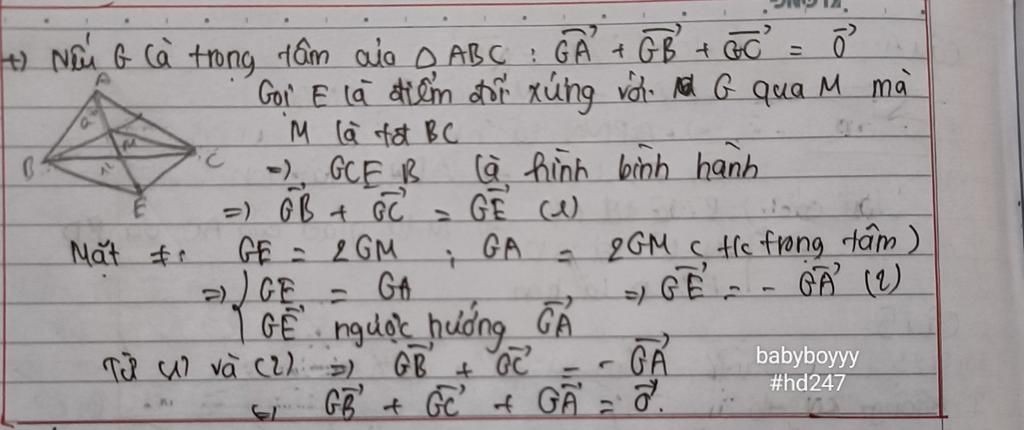 +) Nếu G là trọng tâm của △ABC : $\overrightarrow{GA} + \overrightarrow{GB} + \overrightarrow{GC} = \overrightarrow{0}$
Gọi E là điểm đối xứng với G qua M mà
M là tđ BC
=) GCEB là hình bình hành
=) $\overrightarrow{GB} + \overrightarrow{GC} = \overrightarrow{GE}$ (1)
Mặt ≠: GE = 2GM ; GA = 2GM ( t/c trọng tâm )
=) { GE = GA =) $\overrightarrow{GE} = - \overrightarrow{GA}$ (2)
$\overrightarrow{GE}$ ngược hướng $\overrightarrow{GA}$
Từ (1) và (2) =) $\overrightarrow{GB} + \overrightarrow{GC} = - \overrightarrow{GA}$
(=) $\overrightarrow{GB} + \overrightarrow{GC} + \overrightarrow{GA} = \overrightarrow{0}$.
A
G
M
B
C
E
babyboyyy
#hd247